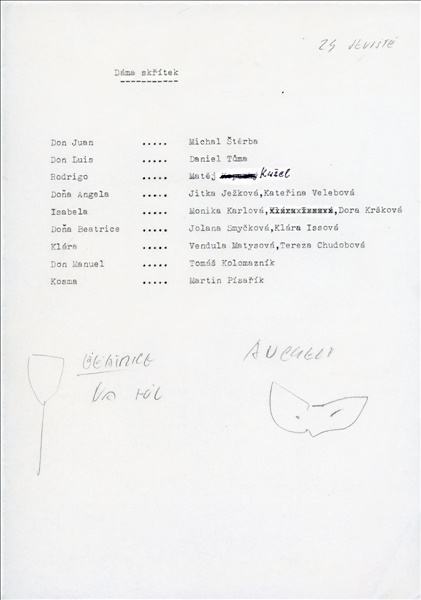 24 JEVIŠTĚ
Dáma skřítek
Don Juan ..... Michal Štěrba
Don Luis ..... Daniel Tůma
Rodrigo ..... Matěj Kužel
Doňa Angela ..... Jitka Ježková,Kateřina Velebová
Isabela ..... Monika Karlová, Dora Kršková
Doňa Beatrice ..... Jolana Smyčková,Klára Issová
Klára ..... Vendula Matysová,Tereza Chudobová
Don Manuel ..... Tomáš Kolomazník
Kosma ..... Martin Písařík
BEATRICE